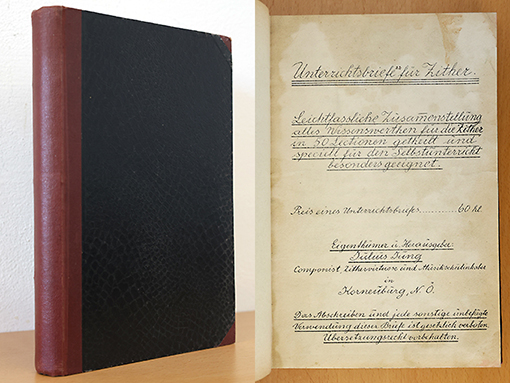 "Unterrichtsbriefe" für Zither.
Leichtfassliche Zusamenstellung
alles Wissenswerthen für die Zither
in 50 Lectionen getheilt und
speciell für den Selbstunterricht
besonders geeignet.
Preis eines Unterrichtsbriefes .......... 60 hl.
Eigenthümer u. Herausgeber:
Julius Jung
Componist, Zithervirtuose und Musikschulinhaber
in
Korneuburg, N.Ö.
Das Abschreiben und jede sonstige unbefugte
Verwendung dieser Briefe ist gesetzlich verboten.
Übersetzungsrecht vorbehalten.